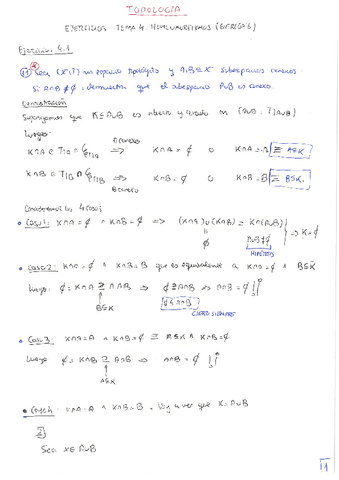 TOPOLOGÍA
EJERCICIOS TEMA 4 HOMEOMORFISMOS (ENTREGA 6)
Ejercicio 4.1
Sea (X,T) un espacio topológico y A,B⊆X subespacios conexos.
Si A∩B≠∅, demuestra que el subespacio A∪B es conexo.
Demostración
Supongamos que K⊆A∪B es abierto y cerrado en (A∪B, T|A∪B)
Luego:
A conexo
K∩A ∈ T|A ∩ C|A ⇒ K∩A = ∅ o K∩A = A ≡ A⊆K
K∩B ∈ T|B ∩ C|B ⇒ K∩B = ∅ o K∩B = B ≡ B⊆K.
B conexo
Consideramos los 4 casos
• Caso 1: K∩A = ∅ ∧ K∩B = ∅ ⇒ (K∩A)∪(K∩B) = K∩(A∪B) ⇒ K=∅
∅
• Caso 2: K∩A = ∅ ∧ K∩B = B que es equivalente a K∩A = ∅ ∧ B⊆K
Luego: ∅ = K∩A ⊇ A∩B ⇒ ∅ ⊇ A∩B ⇒ A∩B = ∅
B⊆K
CIERTO SIEMPRE
• Caso 3: K∩A = A ∧ K∩B = ∅ ≡ A⊆K ∧ K∩B = ∅
Luego ∅ = K∩B ⊇ A∩B ⇒ A∩B = ∅
A⊆K
• Caso 4: K∩A = A ∧ K∩B = B. Hay q ver que K = A∪B
⊇
Sea x∈A∪B